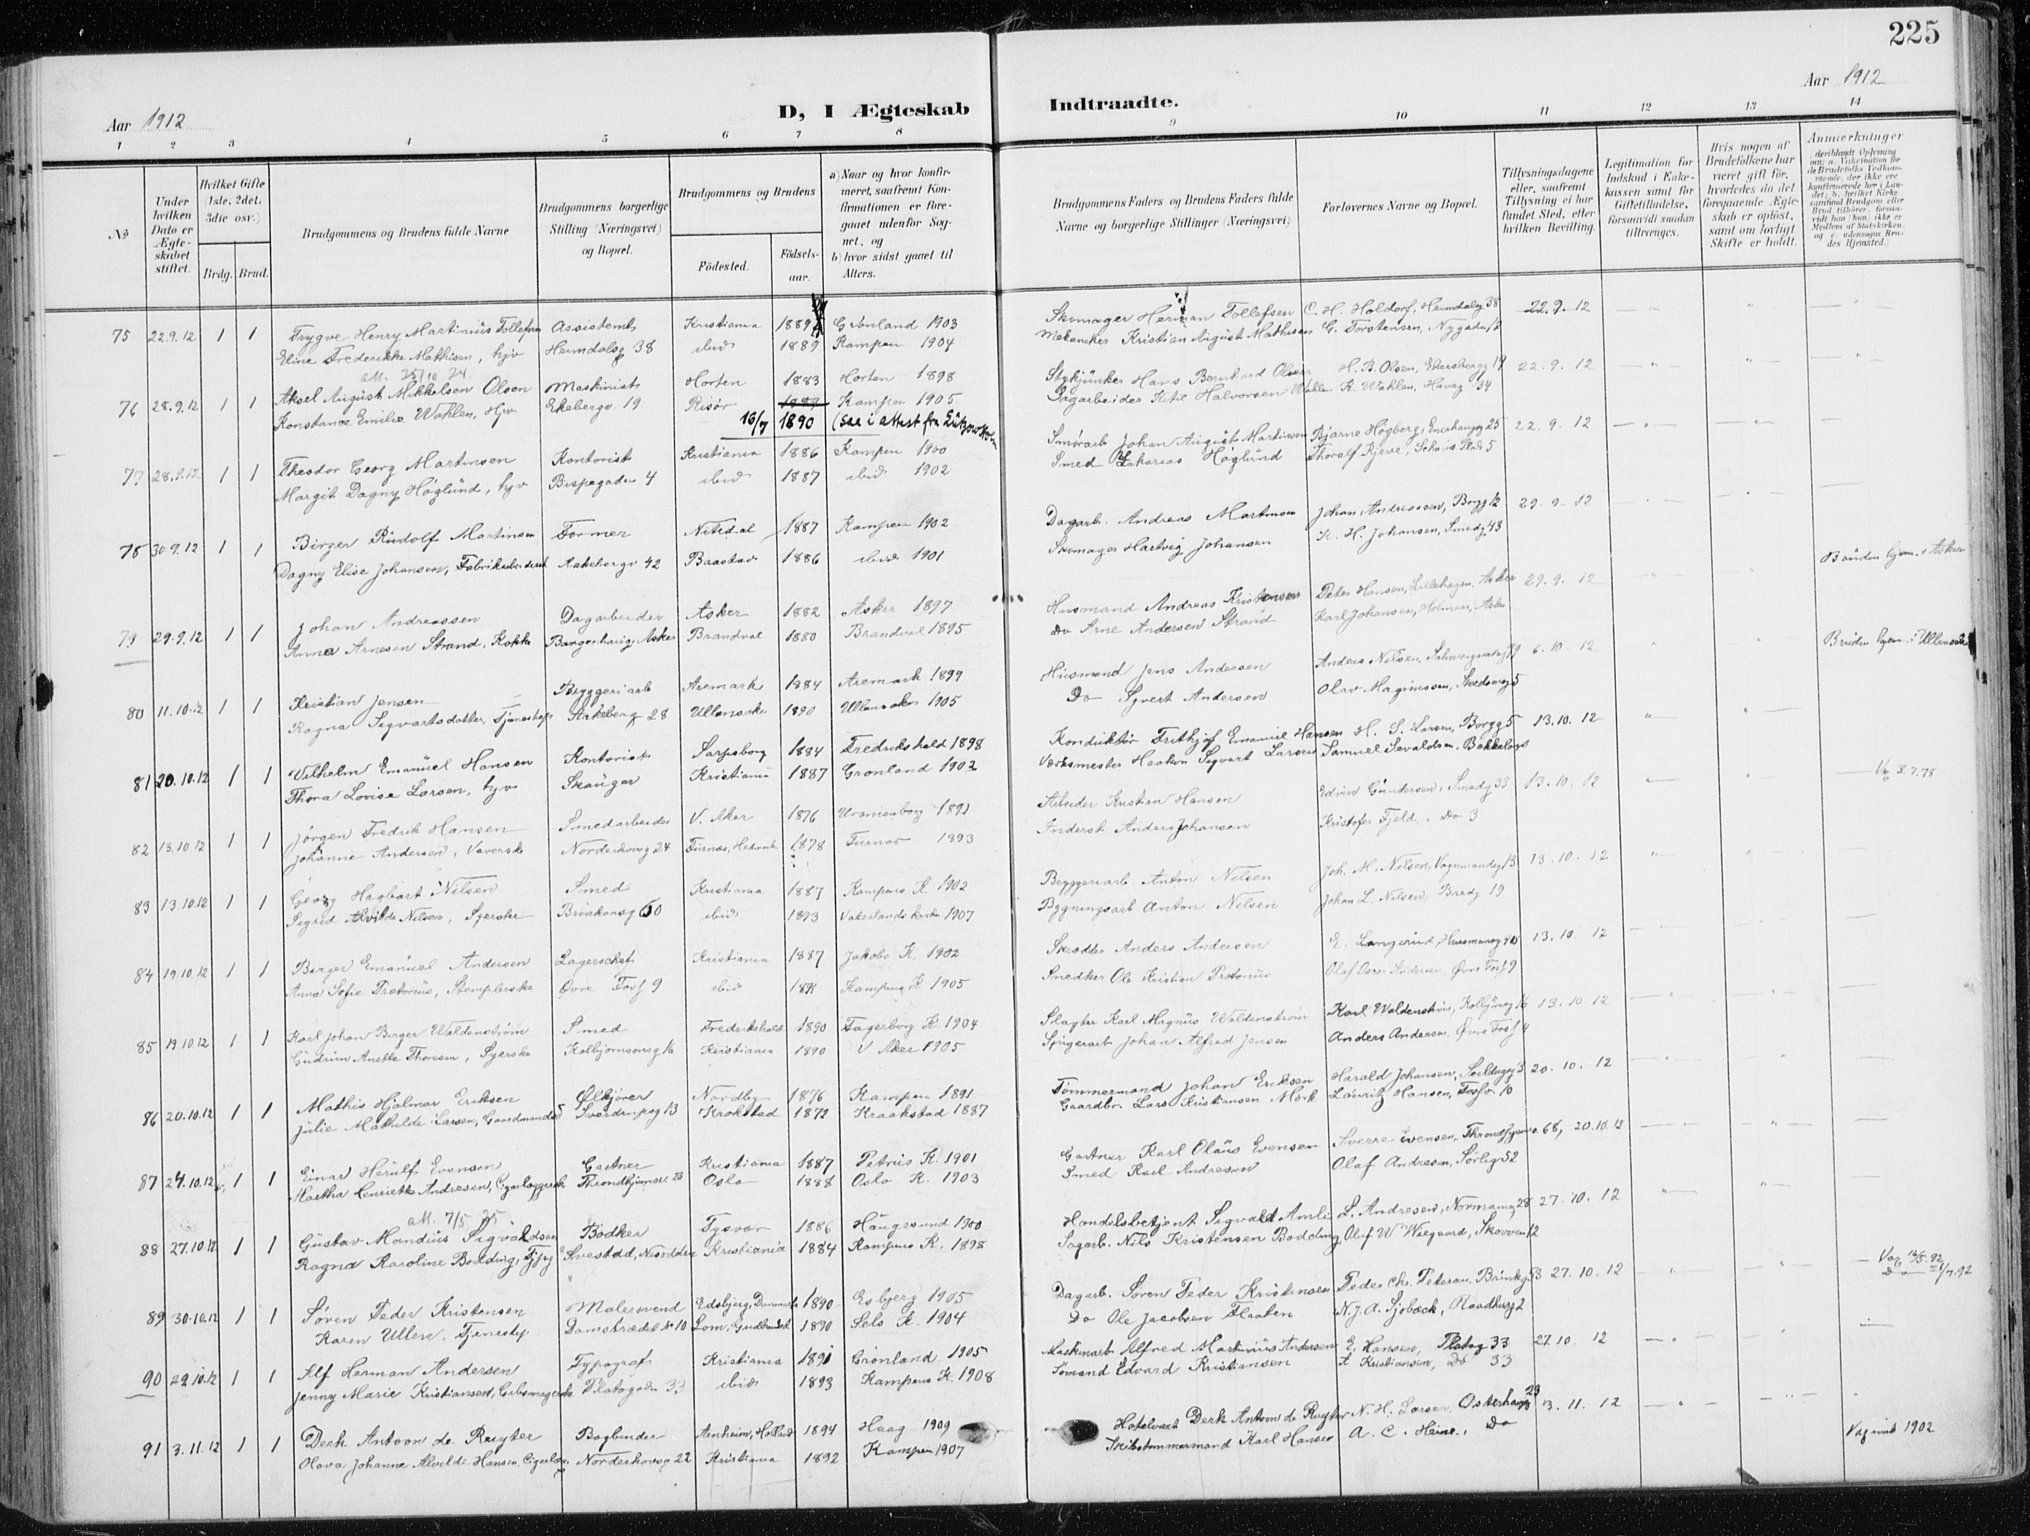 225
Aar 1912
D, I Ægteskab Indtraadte.
Aar 1912
1 2 3 4 5 6 7 8 9 10 11 12 13 14
No
Under hvilken Dato er Ægteskabet stiftet.
Hvilket Gifte (1ste, 2det, 3die osv.)
Brdg. Brud.
Brudgommens og Brudens fulde Navne
Brudgommens borgerlige Stilling (Næringsvei) og Bopæl.
Brudgommens og Brudens
Födested.
Födselsaar.
a) Naar og hvor konfirmeret, saafremt Konfirmationen er foregaaet udenfor Sognet, og
b) hvor sidst gaaet til Alters.
Brudgommens Faders og Brudens Faders fulde Navne og borgerlige Stillinger (Næringsvei)
Forlovernes Navne og Bopæl.
Tillysningsdagene eller, saafremt Tillysning ei har fundet Sted, efter hvilken Bevilling.
Legitimation for Indskud i Enkekassen samt for Giftetilladelse, forsaavidt saadan tiltrænges.
Hvis nogen af Brudefolkene har været gift før, hvorledes da det foregaaende Ægteskab er opløst, samt om lovligt Skifte er holdt.
Anmærkninger
deriblandt Oplysning om: a. Vakcination for de Brudefolks Vedkommende, der ikke ere konfirmerede her i Landet; b. hvilket Kirkesamfund Brudgom eller Brud tilhører, forsaavidt han (hun) ikke er Medlem af Statskirken, og c. udensogns Brudes Hjemsted.
75 22.9.12 1 1 Trygve Henry Martinius Tollefsen Assistent Kristiania 1889 Grønland 1903 Skomager Herman Tollefsen C. H. Holdorf, Heimdalsg 38 22.9.12
Eline Frederikke Mathisen, hjv Heimdalsg 38 ibid 1889 Kampen 1904 Mekaniker Kristian August Mathisen G. Torstensen, Nygaden
att. 25/10 24.
76 28.9.12 1 1 Aksel August Mikkelsen Olsen Maskinist Horten 1883 Horten 1898 Stykjunker Hans Bernhard Olsen H. B. Olsen, Ekebergg 19 22.9.12
Konstance Emilie Wahlen, Hjv Ekebergv. 19 Risør 1889 Kampen 1905 Sagarbeider Ketil Halvorsen Wahlen K. Wahlen, Haveg 34
16/7 1890 (sae i attest fra Lützowholm
77 28.9.12 1 1 Theodor Georg Martinsen Kontorist Kristiania 1886 Kampen 1900 Smørarb Johan August Martinsen Bjarne Høgberg, Enerhaugg 25 22.9.12
Margit Dagny Høglund, hjv Bispegaden 4 ibid 1887 ibid 1902 Smed Zakarias Høglund Thoralf Kjeve, Schous Plads 5
78 30.9.12 1 1 Birger Rudolf Martinsen Former Nitedal 1887 Kampen 1902 Dagarb. Andreas Martinsen Johan Andreassen, Borgg 12 29.9.12
Dagny Elise Johansen, Fabrikarbeiderske Aakebergv 42 Baastad 1886 ibid 1901 Skomager Hartvig Johansen K. H. Johansen, Smedg 43
79 29.9.12 1 1 Johan Andreassen Dagarbeider Asker 1882 Asker 1897 Husmand Andreas Kristensen Peter Hansen, Lillehagen, Asker 29.9.12 Bruden hjem. i Asker
Anna Arnesen Strand, Kokke Asker Brandval 1880 Brandval 1895 Do Arne Andersen Strand Karl Johansen, Holmen, Asker
80 11.10.12 1 1 Kristian Jensen Bryggeriarb Aremark 1884 Aremark 1899 Husmand Jens Andersen Anders Nilsen, 6.10.12 Bruden hjem. i Ullensaker
Ragna Sigvartsdatter, Tjenestep Aakeberg 28 Ullensaker 1890 Ullensaker 1905 Do Syvert Andersen Olav Magnussen, 5
81 20.10.12 1 1 Vilhelm Emanuel Hansen Kontorist Sarpsborg 1884 Fredrikshald 1898 Konduktør Frithjof Emanuel Hansen H. S. Larsen, Borgg 5 13.10.12
Thora Lovise Larsen, hjv Skauger Kristiania 1887 Grønland 1902 Værksmester Haakon Sigvart Larsen Samuel Sevaldsen, Bekkelaget
82 13.10.12 1 1 Jørgen Fredrik Hansen Smedarbeider V. Aker 1876 Uranienborg 1891 Arbeider Kristian Hansen Edvin Gundersen, Smedg 33 13.10.12 Vg 3.7.78
Johanne Andersen, Væverske Norderhovsg 24 Furnæs, Hedemk 1878 Furnes 1893 Inderst Anders Johansen Kristofer Fjeld, Do 3
83 13.10.12 1 1 Georg Hagbart Nilsen Smed Kristiania 1887 Kampens K. 1902 Bryggeriarb. Anton Nilsen Joh. M. Nilsen, Vognmandsg 13 13.10.12
Sigrid Alvilde Nilsen, Syerske Brinkensg 60 ibid 1893 Vaterlands kirke 1907 Bygningsarb Anton Nilsen Johan L. Nilsen, Bredg 19
84 19.10.12 1 1 Birger Emanuel Andersen Lagerchef Kristiania 1887 Jakobs K. 1902 Skrædder Anders Andersen E. Langerud, Hausmannsg 40 13.10.12
Anna Sofie Pretorius, Stemplerske Øvre Fossg 9 ibid 1891 Kampens K. 1905 Snedker Ole Kristian Pretorius Olaf Andersen, Øvre Fossg 9
85 19.10.12 1 1 Karl Johan Birger Waldenstrøm Smed Fredrikshald 1890 Fagerborg K. 1904 Slagter Karl Magnus Waldenstrøm Karl Waldenstrøm, Kolbjørnsg 16 13.10.12
Gudrun Anette Thoresen, Syerske Kolbjørnsensg 16 Kristiania 1890 V. Aker 1905 Spigerarb Johan Alfred Jensen Anders Andersen, Øvre Fossg 4
86 20.10.12 1 1 Mathis Hjalmar Eriksen Ølkjører Nordby 1876 Kampen 1891 Tømmermand Johan Eriksen Harald Johansen, Seildugsg 3 20.10.12
Julie Mathilde Larsen, Gaardmandsd Sverdrupsg 13 Krokstad 1872 Kraakstad 1887 Gaardbr. Lars Kristiansen Mørk Lauritz Hansen, Fossv. 10
87 24.10.12 1 1 Einar Herulf Evensen Gartner Kristiania 1887 Petrus K. 1901 Gartner Karl Olaus Evensen Sverre Evensen, Throndhjemsv. 68, 20.10.12
Martha Henriette Andresen, Cigarlæggersk Throndhjemsv. 23 Oslo 1888 Oslo K. 1903 Smed Karl Andresen Olaf Andresen, Sørlig 52
att. 7/5 25
88 27.10.12 1 1 Gustav Mandius Sigvaldsen Bødker Tysvær 1886 Haugesund 1900 Handelsbetjent Sigvald Amli L. Andresen, Normannsg 28 27.10.12
Ragna Karoline Bodding, Tjg Svestad, Nesodden Kristiania 1884 Kampens K. 1898 Sagarb. Nils Kristensen Bodding Olaf W Wiegaard, Skovveien 12
89 30.10.12 1 1 Søren Peder Kristensen Malersvend Edsbjerg, Danmark 1890 Esbjerg 1905 Dagarb. Søren Peder Kristensen Peder Chr. Petersen, Brinkg 53 27.10.12 Vag 13/5.92
Karen Ullen, Tjenestp. Damstrædet No 10 Lom, Gudbrdal 1890 Sels K. 1904 Do Ole Jacobsen Flaaten N. J. A. Sjøbæck, Raadhusg 2 Do 21/7.92
90 29.10.12 1 1 Alf Herman Andersen Typograf Kristiania 1891 Grønland 1905 Maskinarb Alfred Martinius Andersen E. Hansen, Platog 33 27.10 12
Jenny Marie Kristiansen, Gibsmagerske Platogaden 33 ibid 1893 Kampens K. 1908 Sømand Edvard Kristiansen A. Kristiansen, Do 33
91 3.11.12 1 1 Derk Antoon de Ruyter Bogbinder Arnheim, Holland 1894 Haag 1909 Hotelvært Derk Antoon de Ruyter N. H. Larsen, Osterhausg 23 3.11.12
Olava Johanne Alvilde Hansen, Cigarlæg. Norderhovsg 22 Kristiania 1892 Kampen 1907 Skibstømmermand Karl Hansen A. C. Heine, Do Vag 1902